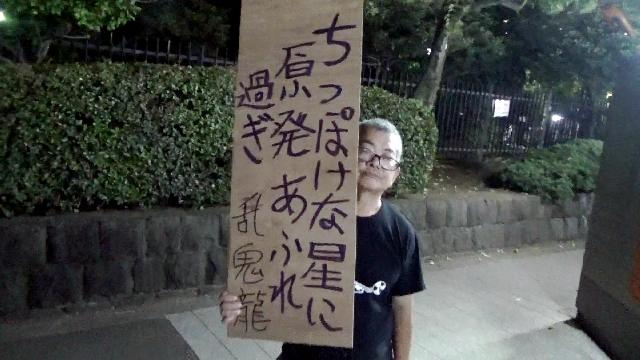 ちっぽけな星に
原発あふれ
過ぎ
乱鬼龍